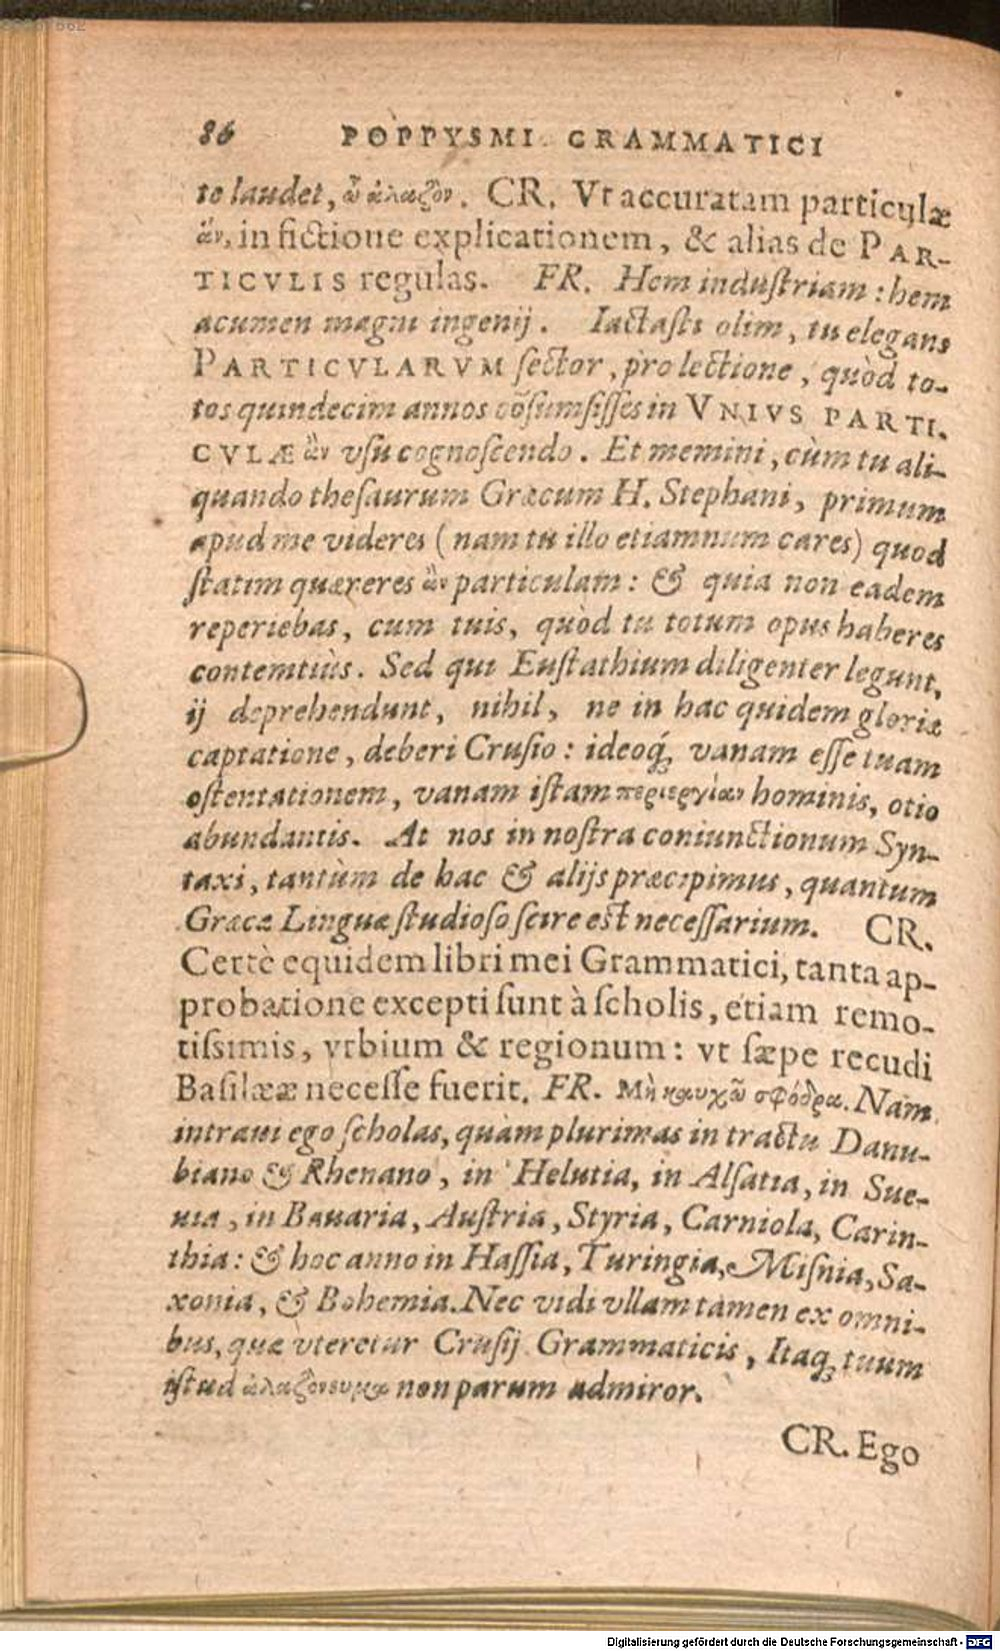 86 POPPYSMI GRAMMATICI
te laudet, ὦ ἀλαζών. CR. Vt accuratam particulæ
ἄν, in fictione explicationem, & alias de PAR-
TICVLIS regulas. FR. Hem induſtriam: hem
acumen magni ingenij. Iactaſti olim, tu elegans
PARTICVLARVM ſector, pro lectione, quòd to-
tos quindecim annos cõſumſiſſes in VNIVS PARTI-
CVLÆ ἂν vſu cognoſcendo. Et memini, cùm tu ali-
quando theſaurum Græcum H. Stephani, primum
apud me videres (nam tu illo etiamnum cares) quod
ſtatim quæreres ἂν particulam: & quia non eadem
reperiebas, cum tuis, quòd tu totum opus haberes
contemtiùs. Sed qui Euſtathium diligenter legunt,
ij deprehendunt, nihil, ne in hac quidem gloriæ
captatione, deberi Cruſio: ideoq́; vanam eſſe tuam
oſtentationem, vanam iſtam περιεργίαν hominis, otio
abundantis. At nos in noſtra coniunctionum Syn-
taxi, tantùm de hac & alijs præcipimus, quantum
Græcæ Linguæ ſtudioſo ſcire eſt neceſſarium. CR.
Certè equidem libri mei Grammatici, tanta ap-
probatione excepti ſunt à ſcholis, etiam remo-
tiſsimis, vrbium & regionum: vt ſæpe recudi
Baſilææ neceſſe fuerit. FR. Μὴ καυχῶ σφόδρα. Nam
intraui ego ſcholas, quàm plurimas in tractu Danu-
biano & Rhenano, in Helutia, in Alſatia, in Sue-
uia, in Bauaria, Auſtria, Styria, Carniola, Carin-
thia: & hoc anno in Haſſia, Turingia, Miſnia, Sa-
xonia, & Bohemia. Nec vidi vllam tamen ex omni-
bus, quæ vteretur Cruſij Grammaticis, Itaq; tuum
iſtud ἀλαζόνευμα non parum admiror.
CR. Ego
Digitalisierung gefördert durch die Deutsche Forschungsgemeinschaft - DFG